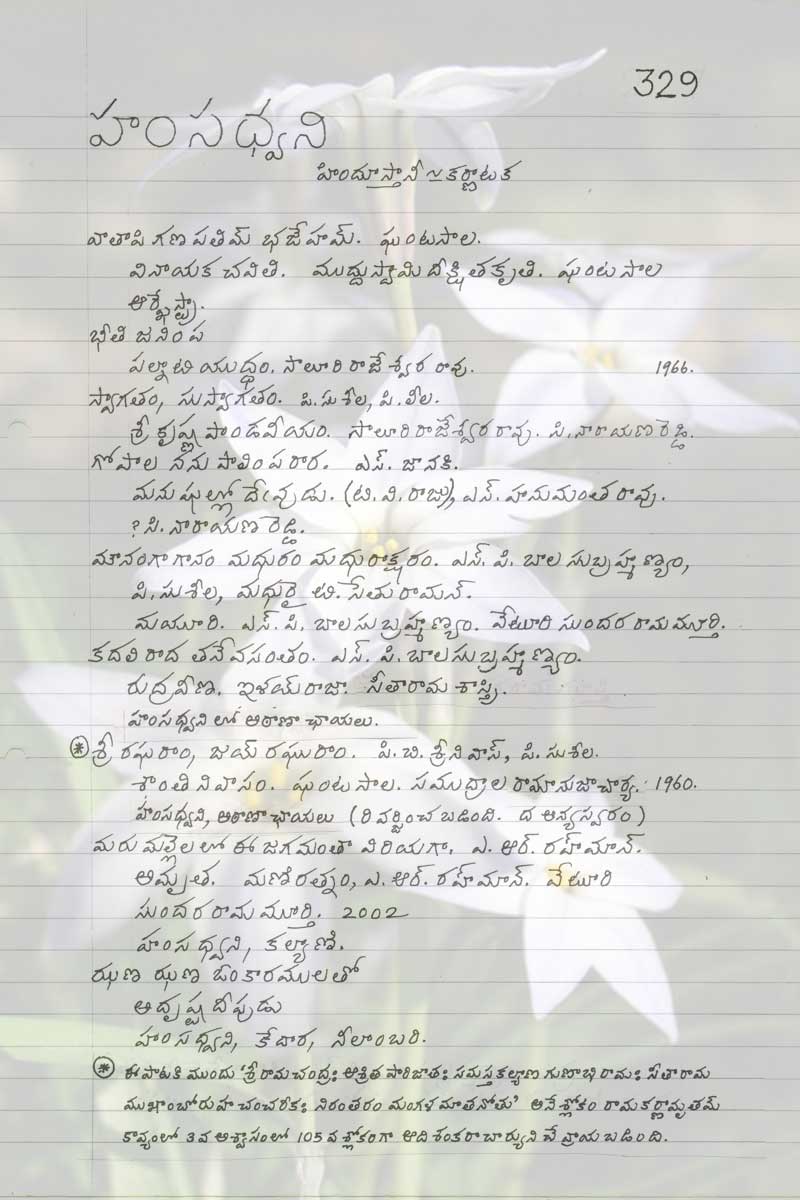 329
హంసధ్వని
హిందూస్తానీ ~ కర్ణాటక
వాతాపి గణపతిమ్ భజేహమ్. ఘంటసాల.
వినాయక చవితి. ముద్దుస్వామి దీక్షిత కృతి. ఘంటసాల
ఆర్కెస్ట్రా.
భీతి జనింప
పల్నాటి యుద్ధం. సాలూరి రాజేశ్వర రావు. 1966.
స్వాగతం, సుస్వాగతం. పి.సుశీల, పి.లీల.
శ్రీ కృష్ణ పాండవీయం. సాలూరి రాజేశ్వర రావు. సి.నారాయణ రెడ్డి.
గోపాల నను పాలింపరార. ఎస్. జానకి.
మనుషుల్లో దేవుడు. (టి.వి.రాజు), ఎస్. హనుమంత రావు.
? సి. నారాయణ రెడ్డి.
మౌనంగా గానం మధురం మధురాక్షరం. ఎస్. పి. బాలసుబ్రహ్మణ్యం,
పి.సుశీల, మధురై టి. సేతురామన్.
మయూరి. ఎస్. పి. బాలసుబ్రహ్మణ్యం. వేటూరి సుందర రామమూర్తి.
కదలి రాద తనే వసంతం. ఎస్. పి. బాలసుబ్రహ్మణ్యం.
రుద్రవీణ. ఇళయ్ రాజా. సీతారామ శాస్త్రి.
హంసధ్వని లో ఆఠాణా ఛాయలు.
* శ్రీ రఘురాం, జయ్ రఘురాం. పి. బి. శ్రీనివాస్, పి. సుశీల.
శాంతి నివాసం. ఘంటసాల. సముద్రాల రామానుజాచార్య. 1960.
హంసధ్వని, ఆఠాణా ఛాయలు (రి వర్జించబడింది. ద అన్యస్వరం)
మరుమల్లెలలో ఈ జగమంతా విరియగా. ఎ. ఆర్. రహ్మాన్.
అమృత. మణిరత్నం, ఎ. ఆర్. రహ్మాన్. వేటూరి
సుందర రామమూర్తి. 2002
హంసధ్వని, కల్యాణి.
ఝణ ఝణ ఓంకారములతో
అదృష్ట దీపుడు
హంసధ్వని, కేదార, నీలాంబరి.
* ఈ పాటకి ముందు 'శ్రీరామచంద్రః ఆశ్రిత పారిజాతః సమస్త కల్యాణ గుణాభిరామః సీతారామ
ముఖాంబోరుహ చంచరీకః నిరంతరం మంగళమాతనోతు' అనే శ్లోకం రామకర్ణామృతమ్
కావ్యంలో 3వ అశ్వాసంలో 105వ శ్లోకంగా ఆది శంకరాచార్యుని చే వ్రాయబడింది.